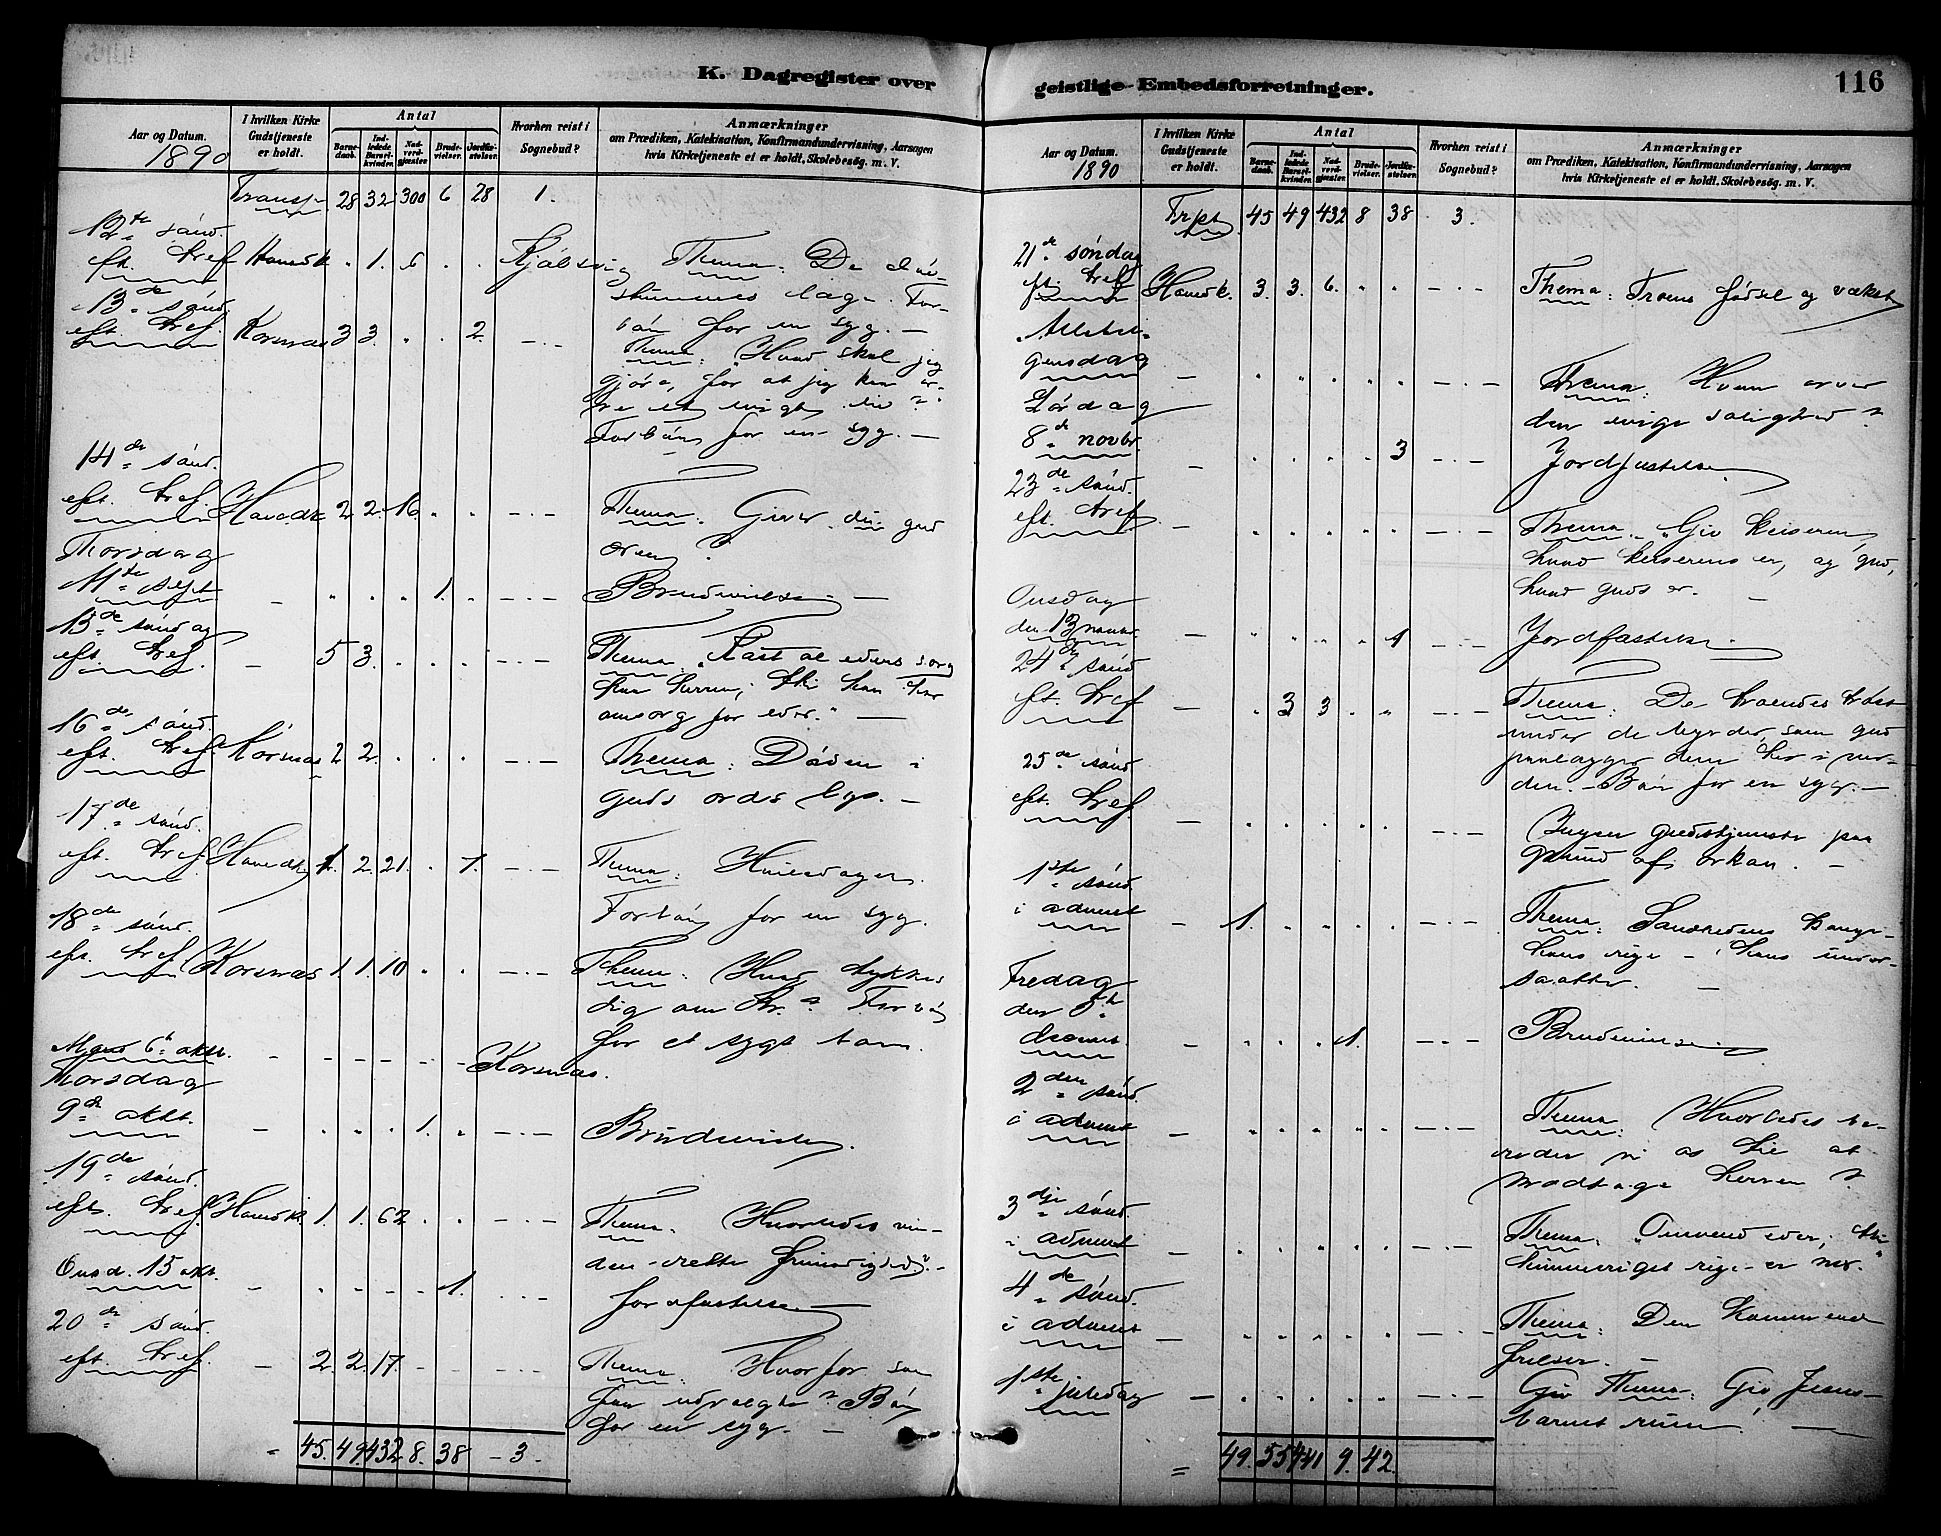 K. Dagregister over
Aar og Datum.
1890
I hvilken Kirke
Gudstjeneste
er holdt.
Antal
Barne-
daab.
Ind-
ledede
Barsel-
kvinder.
Nad-
verd-
gjæster.
Brude-
vielser.
Jordfæ-
stelser.
Hvorhen reist i
Sognebud?
Anmærkninger
om Prædiken, Katekisation, Konfirmandundervisning, Aarsagen
hvis Kirketjeneste ei er holdt, Skolebesög. m. V.
28 32 300 6 28 1.
12te sönd.
eft. tref. . 1. 6 . . Thema: De
læge. For-
bön for en syg. —
13de sönd.
eft. tref. Korsnæs 3 3. . . 2. - . - Thema: "Hvad skal jeg
gjöre, for at jeg kan ar-
ve et evigt liv?"
Forbön for en syg. —
14de sönd.
eft. tref. 2 2. 16. . . - . - Thema: Giver du gud
æren?
Thorsdag
11te sept. - . . . 1. . - . - Brudevielse —
15de söndag
eft. tref. - 5 3. . . . - . - Thema: "Kast al eders sorg
paa herren, thi han har
omsorg for eder." —
16de sönd.
eft. tref. Korsnæs 2 2. . . . - . - Thema: Döden i
guds ords lys. —
17de sönd.
eft. tref. 1. 2. 21. . 1. - . - Thema: Hviledagen.
Forbön for en syg.
18de sönd.
eft. tref. Korsnæs 1. 1. 10 . . - . - Thema: Hvad tykkes
dig om Kr.? Forbön
for et sygt barn.
Mand 6te okt. - - - - - - Korsnæs.
Thorsdag
9de okt. - . . . 1. . - . - Brudevielse.
19de sönd.
eft. tref. 1. 1. 62 . . - . - Thema: Hvorledes vin-
des rette frimodighed? -
Onsd. 15 okt. - . . . 1. . . - Jordfæstelse —
20de sönd.
eft. tref. - 2. 2. 17. - . - . - Thema: Hvorfor saa
faa udvalgte? Bön
for en syg. —
= 45. 49. 432 8. 38 - 3.
geistlige Embedsforretninger.
116
Aar og Datum.
1890
I hvilken Kirke
Gudstjeneste
er holdt.
Antal
Barne-
daab.
Ind-
ledede
Barsel-
kvinder.
Nad-
verd-
gjæster.
Brude-
vielser.
Jordfæ-
stelser.
Hvorhen reist i
Sognebud?
Anmærkninger
om Prædiken, Katekisation, Konfirmandundervisning, Aarsagen
hvis Kirketjeneste ei er holdt. Skolebesög. m. V.
45 49 432 8 38 3.
21de söndag
eft. tref. 3. 3. 6. . . - . - Thema: Troens födsel og vækst
Allehel-
gensdag - . . . . . - . - Thema: Hvem arver
den evige salighed?
Lördag
8de novbr. - . . . . 3 - . - Jordfæstelse
23de sönd.
eft. tref. - . . . . . - . - Thema: "Giv keiseren,
hvad keiserens er, og gud,
hvad guds er. —
Onsdag
den 13 - . . . . 1 - . - Jordfæstelse.
24de sönd
eft. tref - . 3 3 . . - . - Thema: De troendes tröst
under de byrder, som gud
paalægger dem her i ver-
den. - Bön for en syg. —
25de sönd
eft. tref. - . . . . . - . - Ingen gudstjeneste paa
grund af orkan. —
1ste sönd.
i advent - 1. . . . . - . - Thema: Sandhedens konge -
hans rige - hans under-
saatter. —
Fredag
den 5te
- . . . 1. . - . - Brudevielse
2den sönd.
i advent - . . . . . - . - Thema: Hvorledes be-
reder vi os til at
modtage herren?
3dje sönd.
i advent - . . . . . - . - Thema: "Omvend eder, thi
himmeriges rige er nær."
4de sönd.
i advent - . . . . . - . - Thema: Den kommende
frelser. —
1ste juledag - . . . . . - . - Giv Thema: Giv Jesus-
barnet rum! —
= 49. 55 441 9. 42.